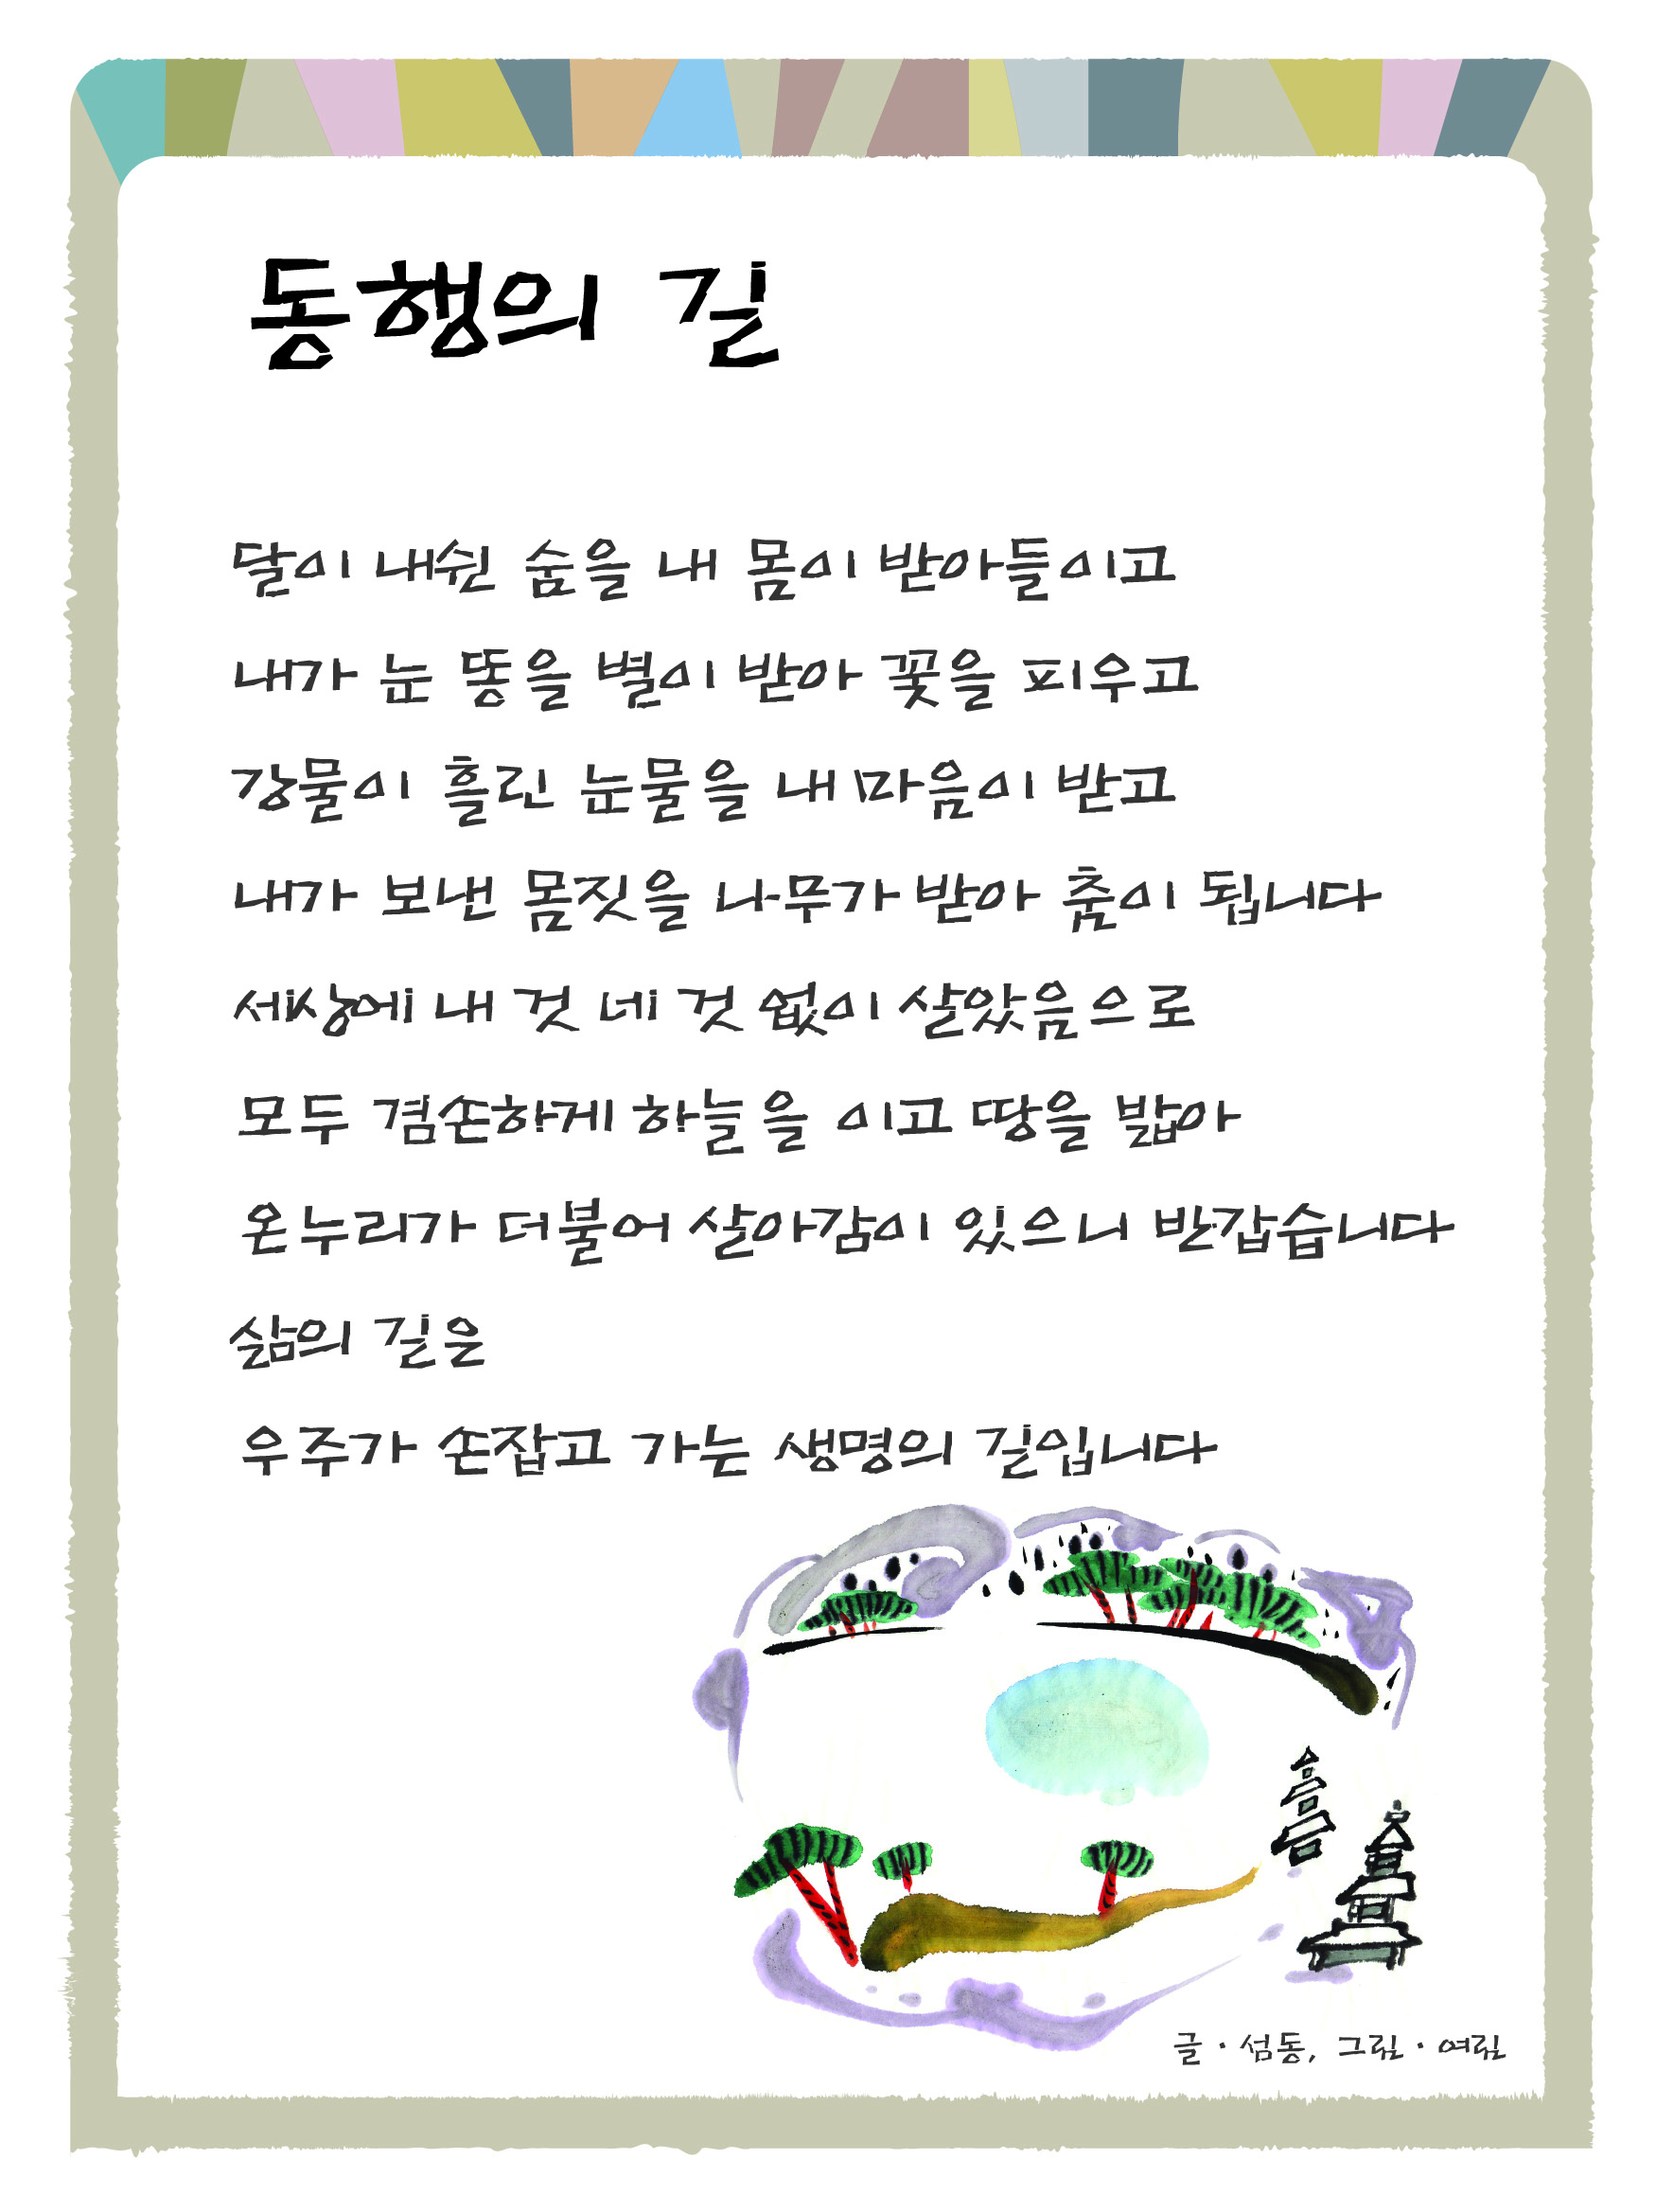 동행의 길
달이 내쉰 숨을 내 몸이 받아들이고
내가 눈 똥을 별이 받아 꽃을 피우고
강물이 흘린 눈물을 내 마음이 받고
내가 보낸 몸짓을 나무가 받아 춤이 됩니다
세상에 내 것 네 것 없이 살았음으로
모두 겸손하게 하늘을 이고 땅을 밟아
온누리가 더불어 살아감이 있으니 반갑습니다
삶의 길은
우주가 손잡고 가는 생명의 길입니다
글·섬동, 그림·여림